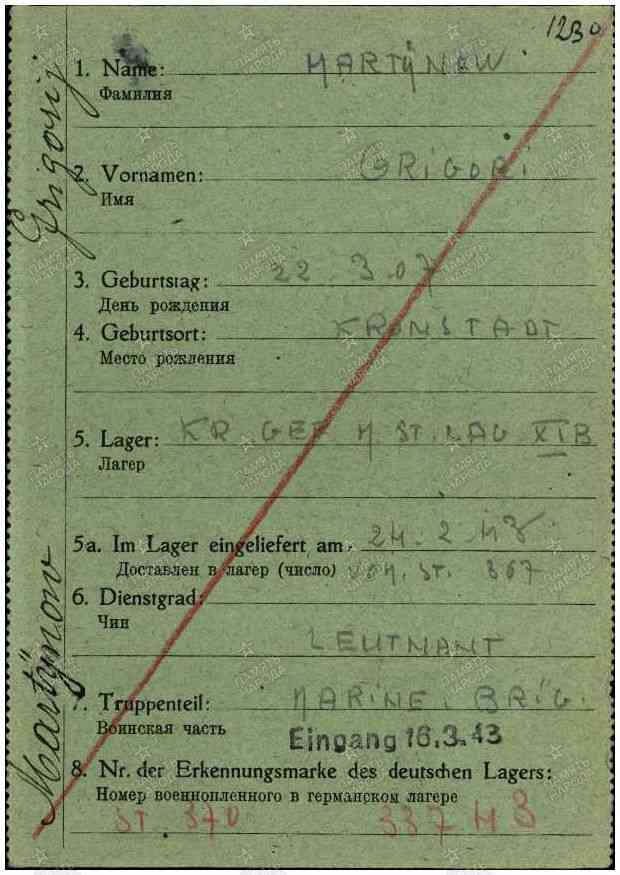 1230
1. Name: MARTÿNOW
Фамилия
2. Vornamen: GRIGORI
Имя
3. Geburtstag: 22.3.07
День рождения
4. Geburtsort: KRONSTADT
Место рождения
5. Lager: KR. GEF. M. ST. LAG XI B
Лагер
5a. Im Lager eingeliefert am: 24.2.43
Доставлен в лагер (число) VOM. ST. 367
6. Dienstgrad:
Чин
LEUTNANT
7. Truppenteil: MARINE. BRIG.
Воинская часть
Eingang 16.3.43
8. Nr. der Erkennungsmarke des deutschen Lagers:
Номер военнопленного в германском лагере
ST 370 33743
Martÿnow Grigorij
ПАМЯТЬ НАРОДА